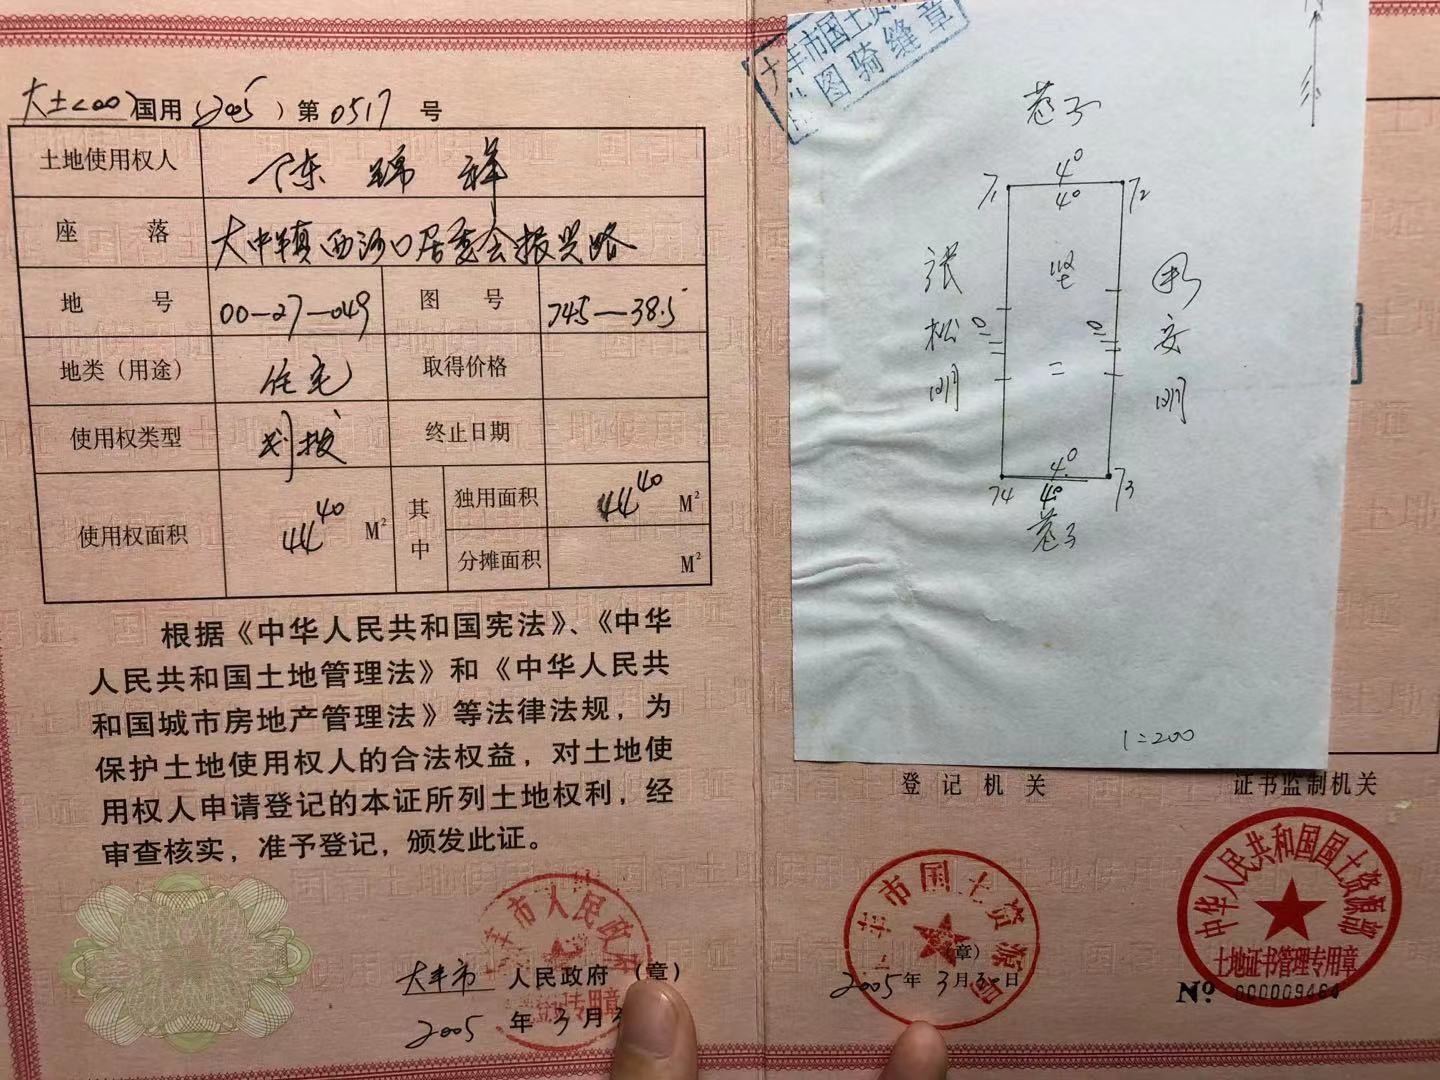 大土<00>国用（2005）第0517号
土地使用权人 陈锦祥
座落 大中镇西河口居委会振兴路
地号 00-27-049 图号 745-38.5
地类（用途） 住宅 取得价格
使用权类型 划拨 终止日期
使用权面积 44.40 M² 其中 独用面积 44.40 M²
分摊面积 M²
根据《中华人民共和国宪法》、《中华
人民共和国土地管理法》和《中华人民共
和国城市房地产管理法》等法律法规，为
保护土地使用权人的合法权益，对土地使
用权人申请登记的本证所列土地权利，经
审查核实，准予登记，颁发此证。
丰市人民政府
登记专用章
大丰市 人民政府（章）
2005年3月3
丰市国土资
图骑缝章
巷子
4.0
71 4.0 72
张松明
二
安明
4.0
74 4.0 73
巷子
1=200
登记机关
丰市国土资源局
章）
2005年3月30日
证书监制机关
中华人民共和国国土资源部
土地证书管理专用章
Nº 000009464